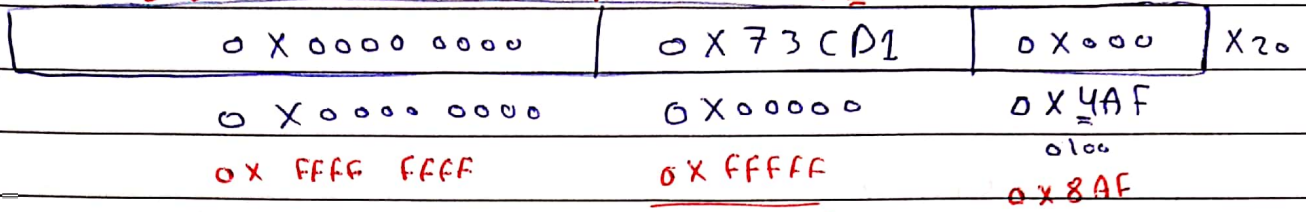 0X0000 0000 0X73CD1 0X000 X20
0X0000 0000 0X00000 0X4AF
0100
0X FFFF FFFF 0X FFFFF 0X8AF